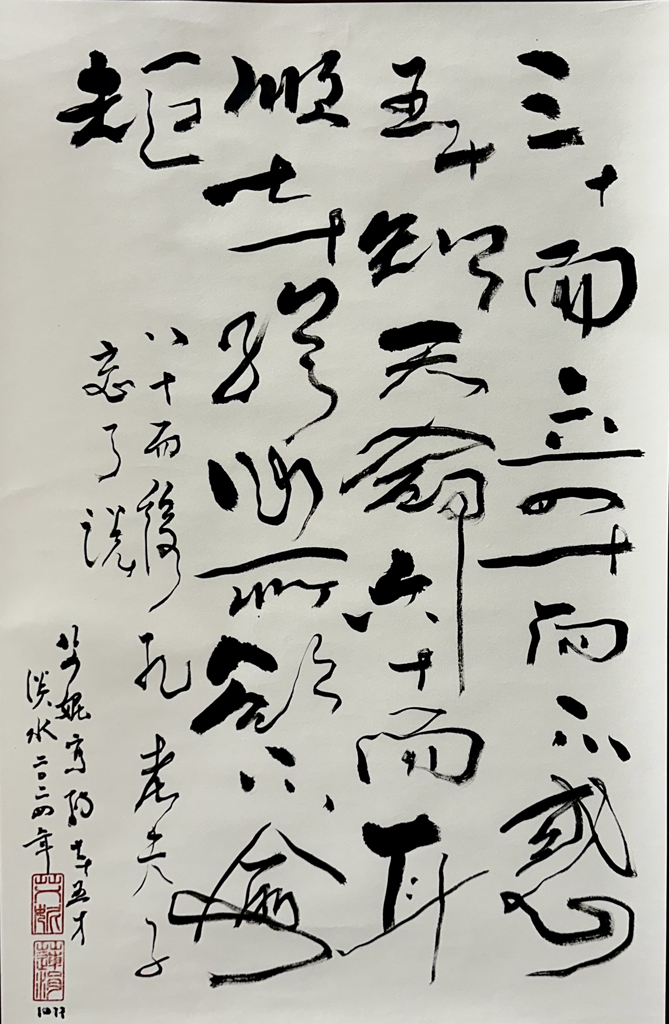 三十而立四十而不惑
五十知天命六十而耳
順七十從心所欲不踰
矩
八十而後孔老夫子
忘了說
淡水二〇二四年